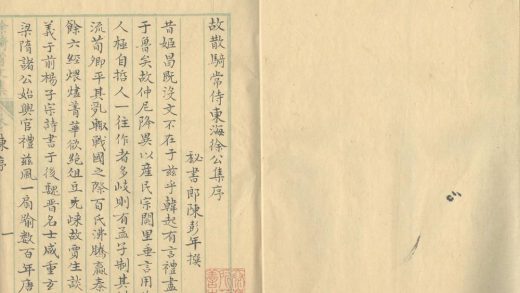 故散騎常侍東海徐公集序
秘書郎陳彭年撰
昔姬昌既沒文不在于茲乎韓起有言禮盡
于魯矣故仲尼降異以產民宗闕里垂言用
人極自哲人一往作者多岐則有孟子制其
流荀卿平其乱轍戰國之際百氏沸騰嬴秦
餘六經煨燼菁華欲絶俎豆旡 故賈生談
義于前楊子宗詩書于後魏晉名士咸重玄
梁隋諸公始興官禮茲風一扇隃數百年唐
陳序
一